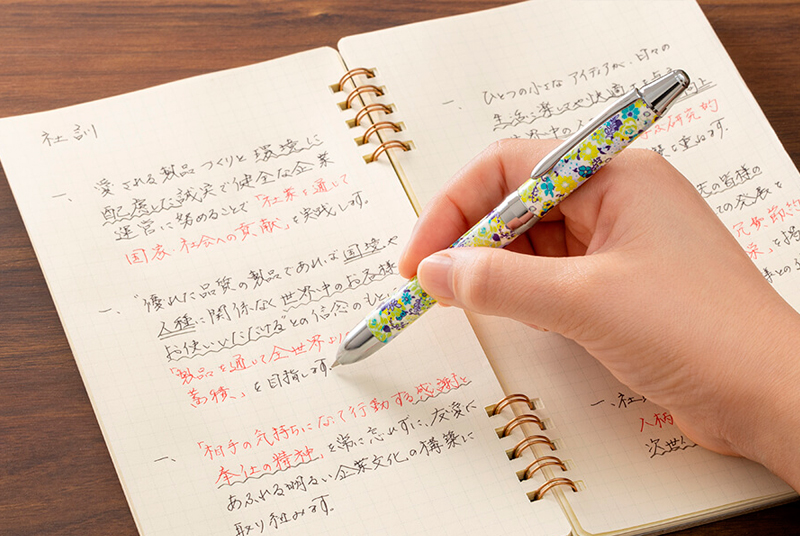 社訓
一、愛される製品つくりと環境に
配慮した誠実で健全な企業
運営に努めることで「社業を通じて
国家・社会への貢献」を実践します。
一、"優れた品質の製品であれば国境や
人種に関係なく世界中のお客様
お使いいただける"との信念のもと、
「製品を通じて全世界より
蓄積、」を目指します。
一、「相手の気持ちになって行動する感謝と
奉仕の精神」を常に忘れずに、友愛に
あふれる明るい企業文化の構築に
取り組みます。
一、ひとつの小さなアイディアが、日々の
生活を楽しや快適
向上
世界中の
研究的
を重ねます。
の皆様の
ての発展を
一、社
人柄
次世